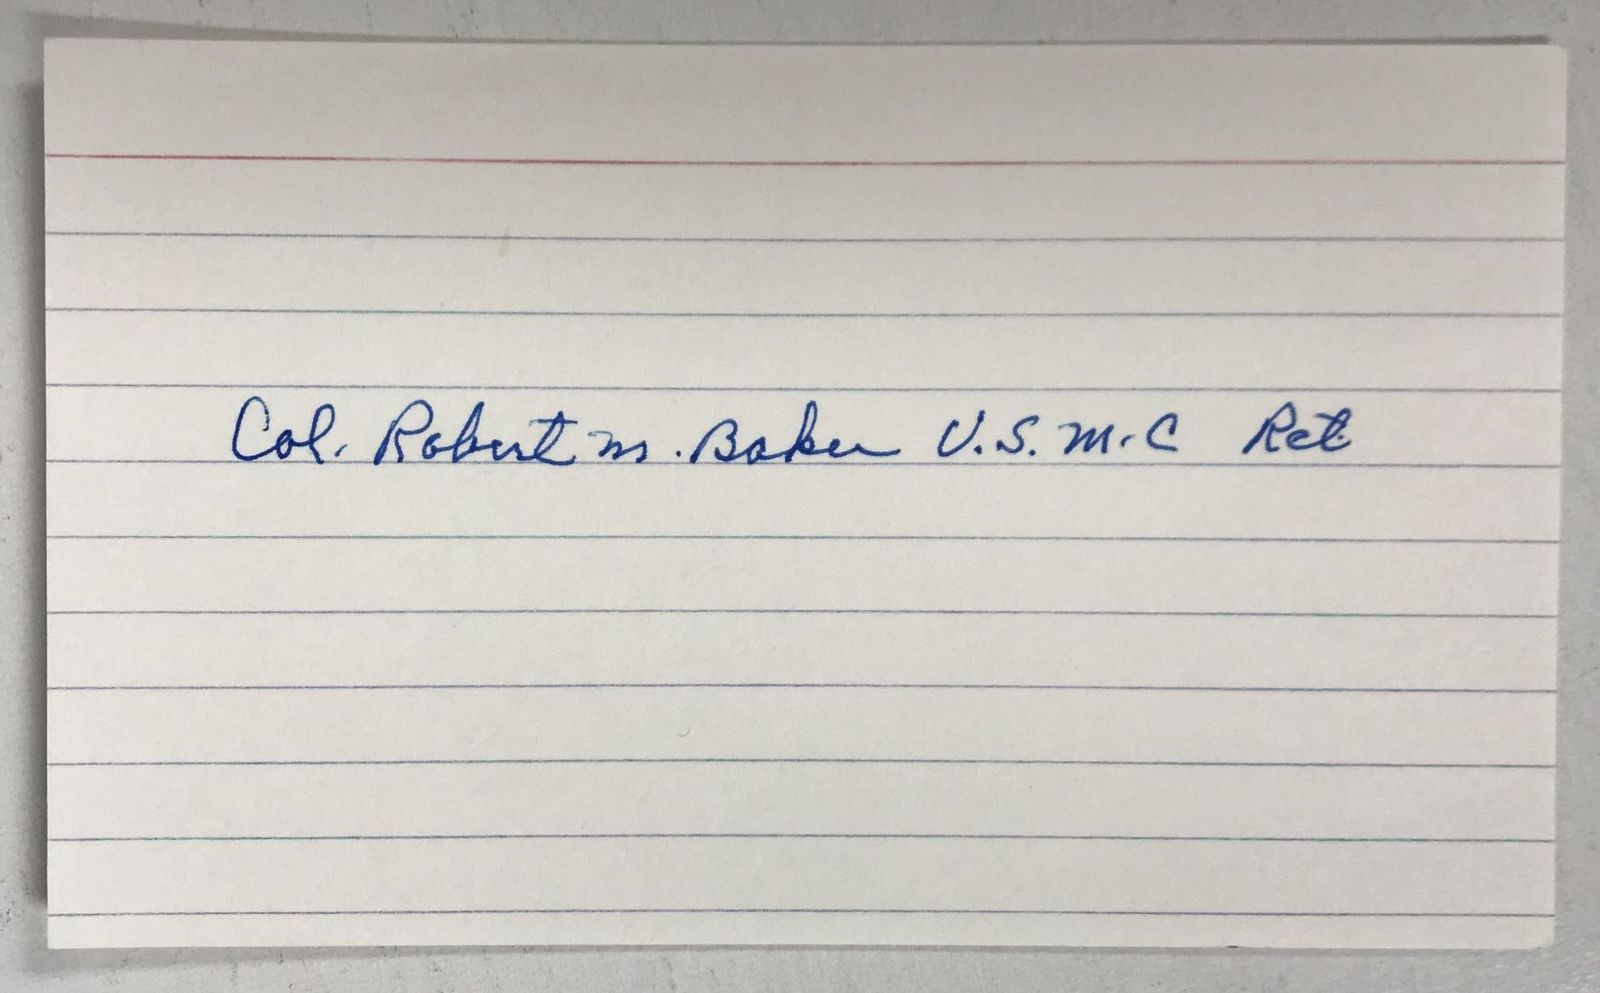 Col. Robert M. Baker U.S.M.C Ret.